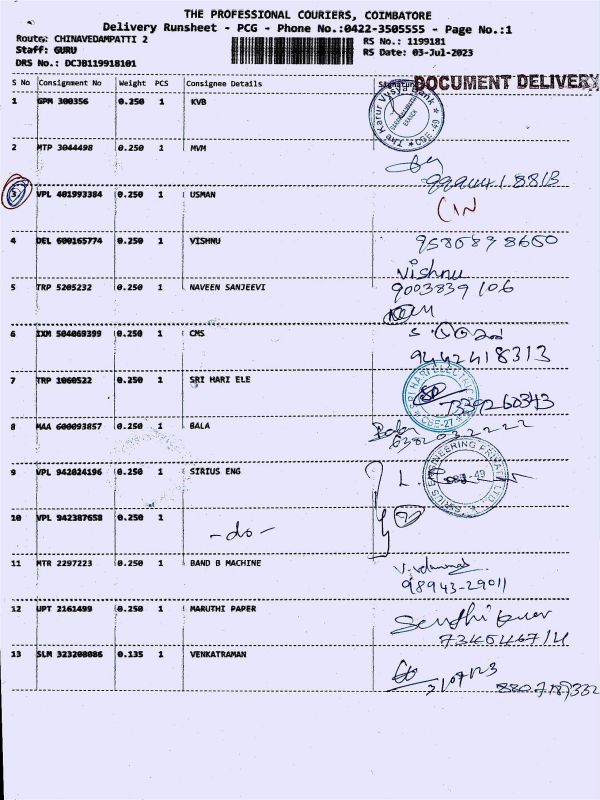 THE PROFESSIONAL COURIERS, COIMBATORE
Delivery Runsheet - PCG - Phone No.:0422-3505555 - Page No.:1
Route: CHINAVEDAMPATTI 2
Staff: GURU
DRS No.: DCJB119918101
RS No.: 1199181
RS Date: 03-Jul-2023
S No Consignment No Weight PCS Consignee Details Signature
DOCUMENT DELIVERY
1 GPM 300356 0.250 1 KVB
The Karur Vysya Bank
CBE-49
2 MTP 3044498 0.250 1 MVM
3 VPL 401993384 0.250 1 USMAN
4 DEL 600165774 0.250 1 VISHNU
Vishnu
5 TRP 5205232 0.250 1 NAVEEN SANJEEVI
9003839106
6 IXM 504069399 0.250 1 CMS
9442418313
7 TRP 1060522 0.250 1 SRI HARI ELE
SRI HARI ELECTRICA
CBE-27
7339260343
8 MAA 600093857 0.250 1 BALA
Bala
6382032222
9 VPL 942024196 0.250 1 SIRIUS ENG
SIRIUS ENGINEERING PRIVATE LTD.
10 VPL 942387658 0.250 1
-do-
11 MTR 2297223 0.250 1 BAND B MACHINE
98943-29011
12 UPT 2161499 0.250 1 MARUTHI PAPER
13 SLM 323208086 0.135 1 VENKATRAMAN